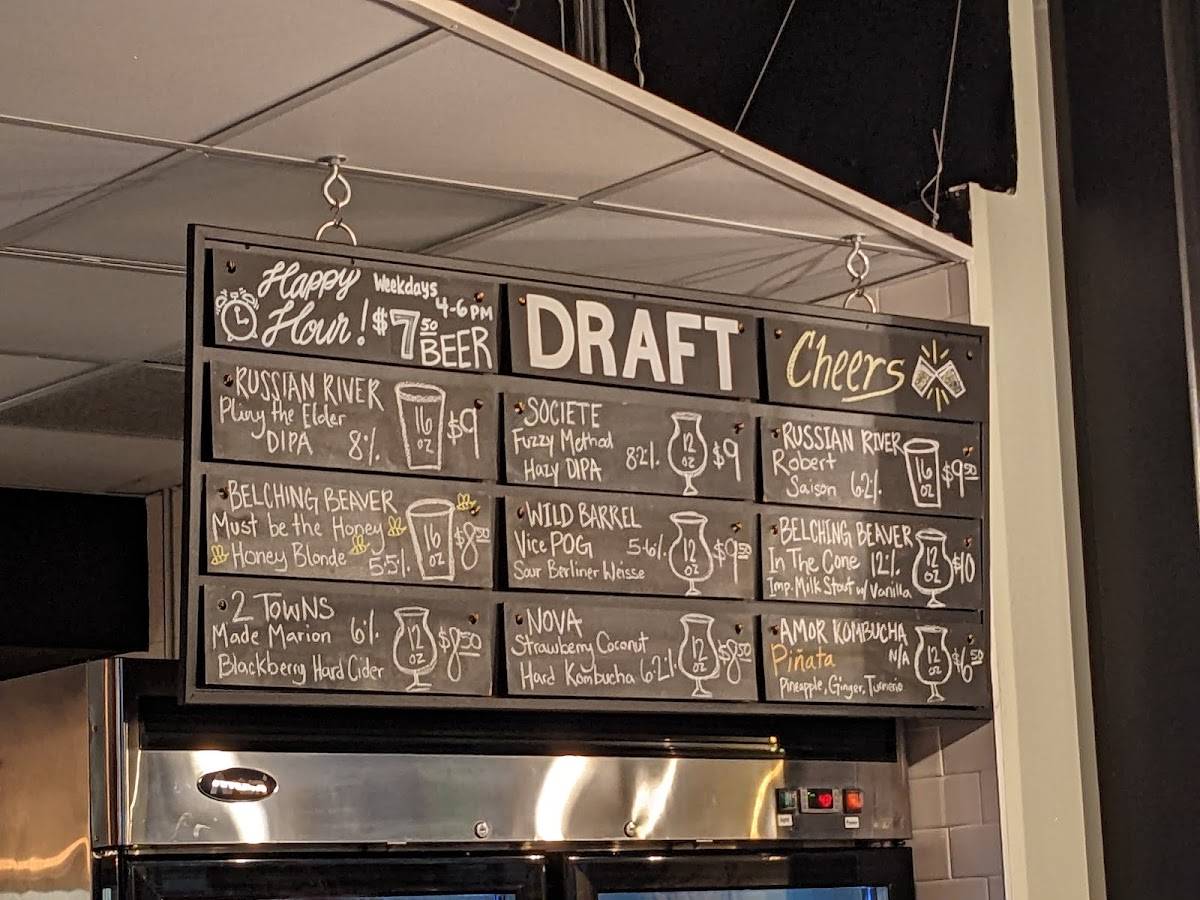 Happy Weekdays
Hour! 4-6 PM
$7.50 BEER
DRAFT
Cheers
RUSSIAN RIVER
Pliny the Elder
DIPA 8% 16 OZ $9
SOCIETE
Fuzzy Method
Hazy DIPA 8.2% 12 OZ $9
RUSSIAN RIVER
Robert
Saison 6.2% 16 OZ $9.50
BELCHING BEAVER
Must be the Honey
Honey Blonde 5.5% 16 OZ $8.50
WILD BARREL
Vice POG 5.6% 12 OZ $9.50
Sour Berliner Weisse
BELCHING BEAVER
In The Cone 12% 12 OZ $10
Imp. Milk Stout w/ Vanilla
2 TOWNS
Made Marion 6% 12 OZ $8.50
Blackberry Hard Cider
NOVA
Strawberry Coconut
Hard Kombucha 6.2% 12 OZ $8.50
AMOR KOMBUCHA
Piñata N/A 12 OZ $6.50
Pineapple, Ginger, Turmeric